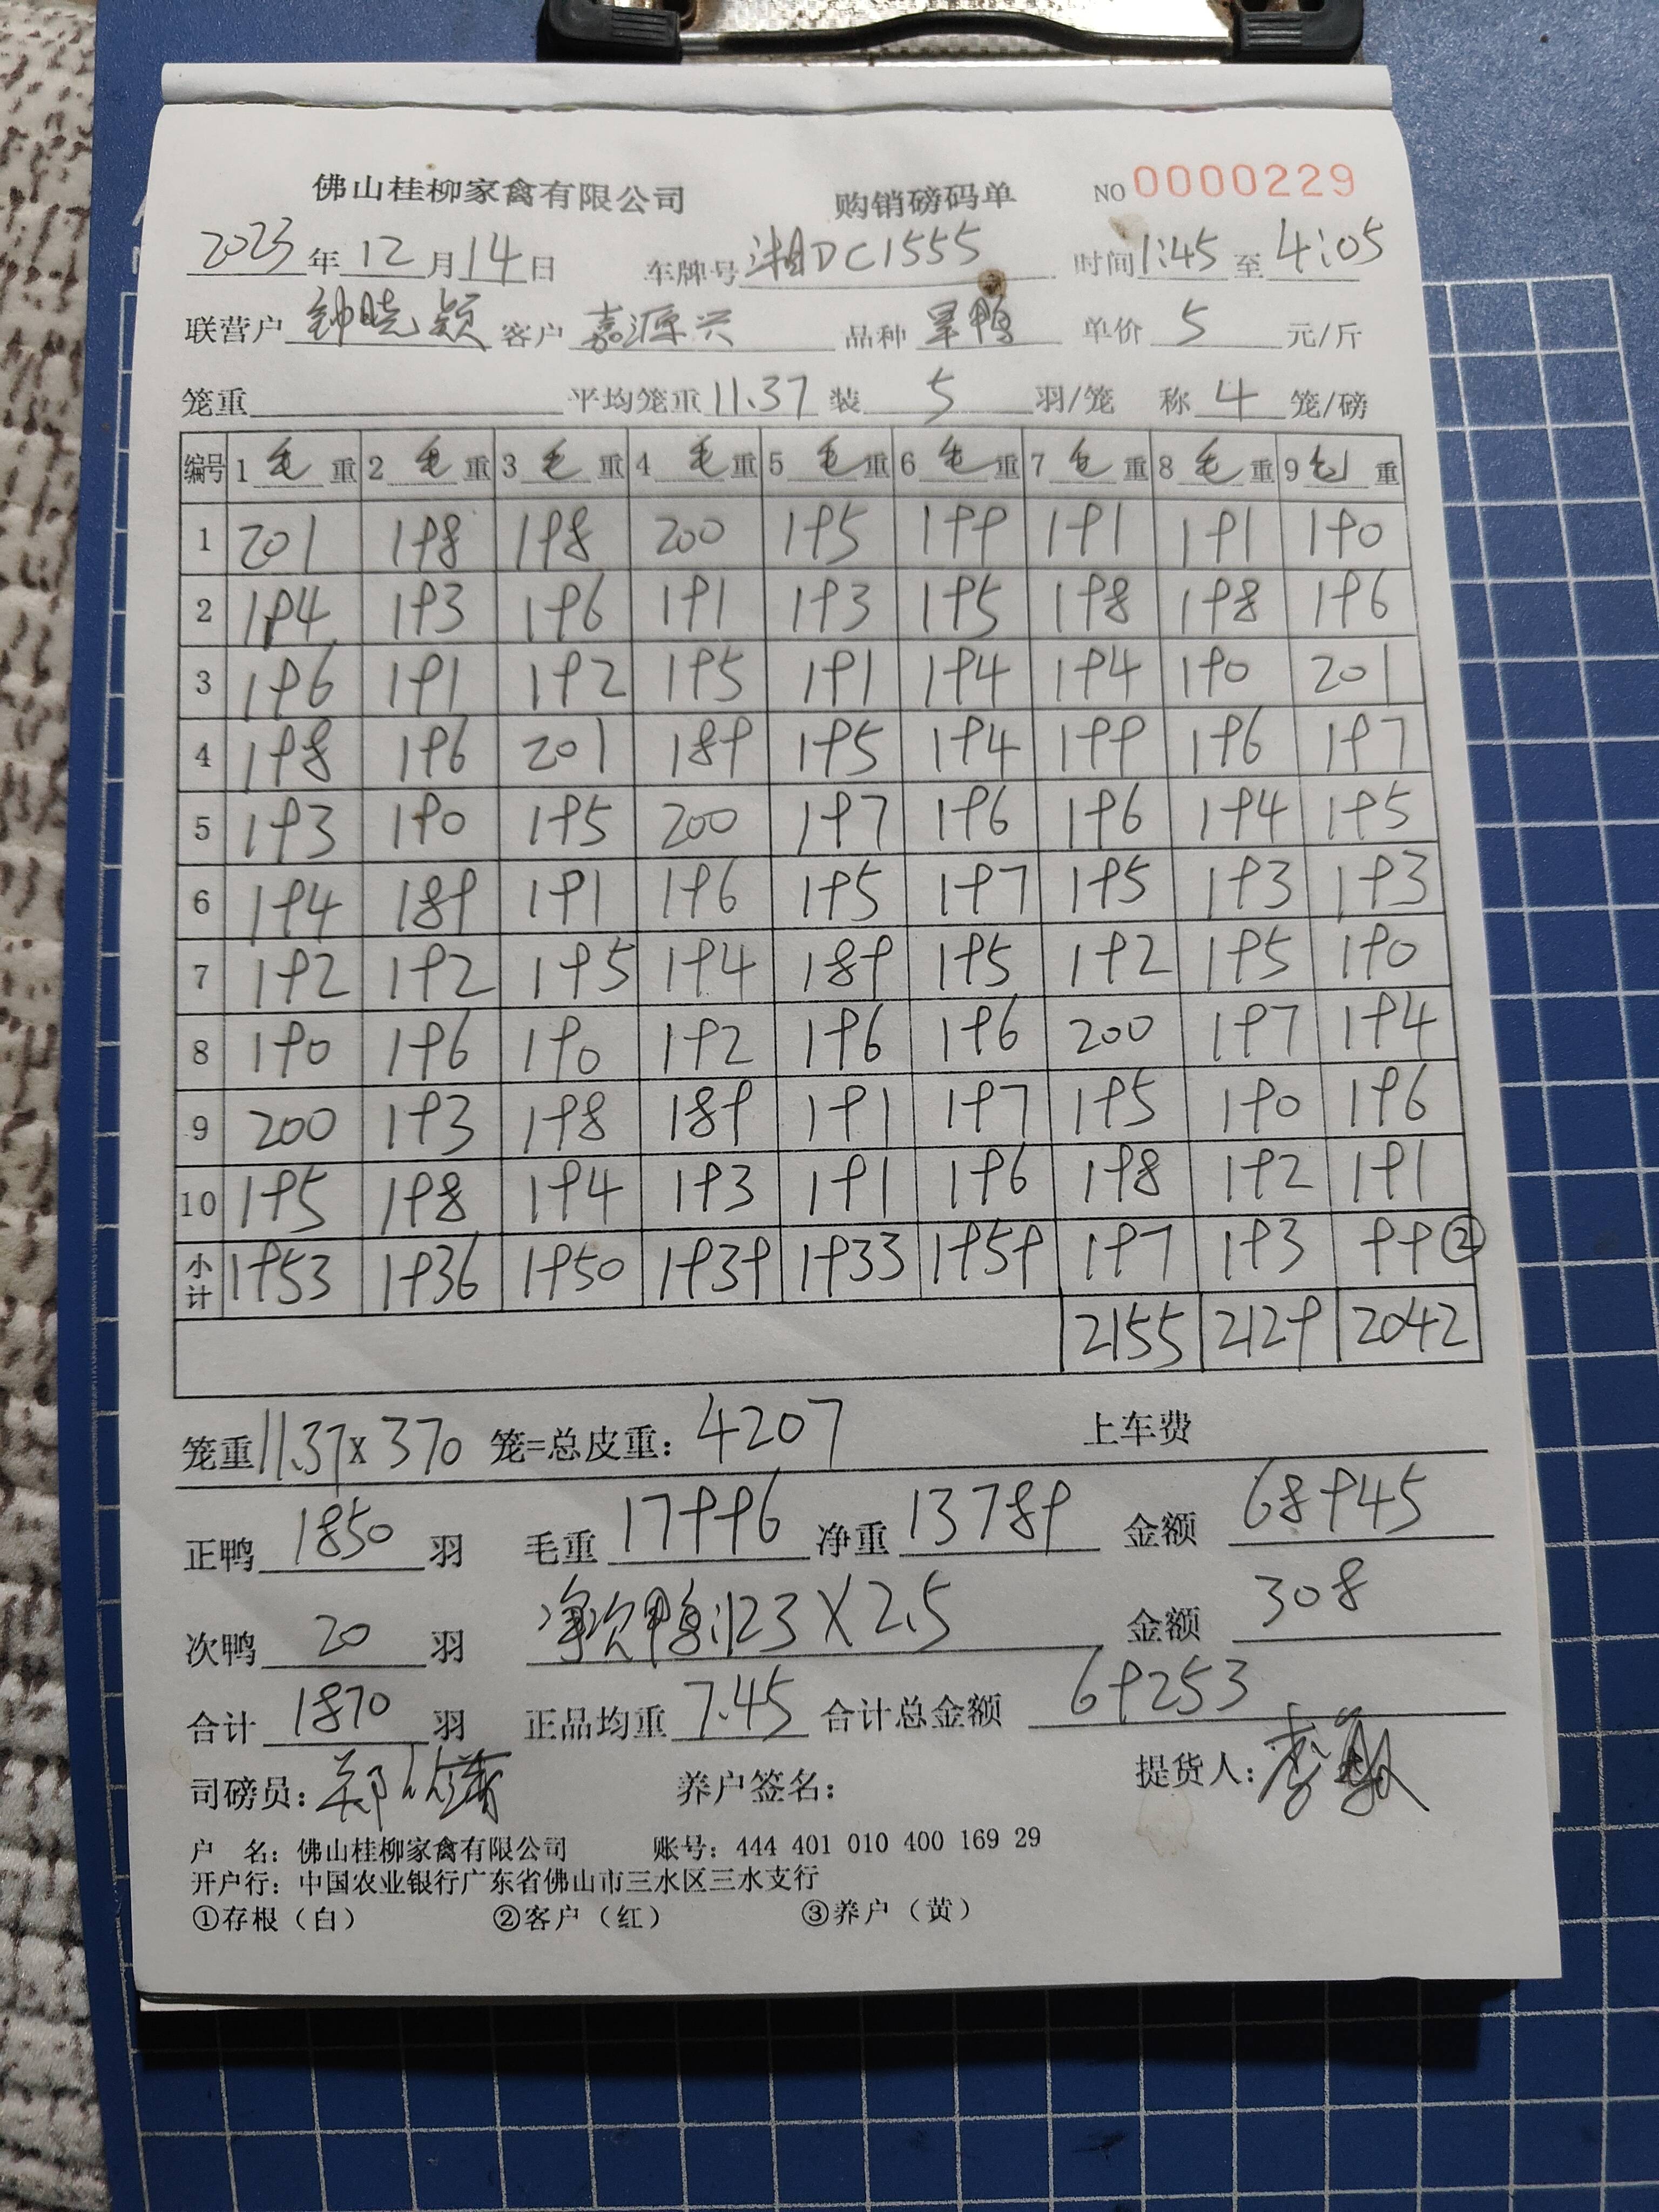 佛山桂柳家禽有限公司 购销磅码单 NO 0000229
2023年12月14日 车牌号 湘DC1555 时间 1:45 至 4:05
联营户 钟晓颖 客户 嘉源兴 品种 旱鸭 单价 5 元/斤
笼重 平均笼重 11.37 装 5 羽/笼 称 4 笼/磅
编号 1 毛重 2 毛重 3 毛重 4 毛重 5 毛重 6 毛重 7 毛重 8 毛重 9 毛重
1 201 198 198 200 195 199 191 191 190
2 194 193 196 191 193 195 198 198 196
3 196 191 192 195 191 194 194 190 201
4 198 196 201 189 195 194 199 196 197
5 193 190 195 200 197 196 196 194 195
6 194 189 191 196 195 197 195 193 193
7 192 192 195 194 189 195 192 195 190
8 190 196 190 192 196 196 200 197 194
9 200 193 198 189 191 197 195 190 196
10 195 198 194 193 191 196 198 192 191
小计 1953 1936 1950 1939 1933 1959 197 193 99②
2155 2129 2042
笼重 11.37 x 370 笼=总皮重: 4207 上车费
正鸭 1850 羽 毛重 17996 净重 13789 金额 68945
次鸭 20 羽 净次鸭:123 X 2.5 金额 308
合计 1870 羽 正品均重 7.45 合计总金额 69253
司磅员: 养户签名: 提货人:
户 名: 佛山桂柳家禽有限公司 账号: 444 401 010 400 169 29
开户行: 中国农业银行广东省佛山市三水区三水支行
①存根（白） ②客户（红） ③养户（黄）